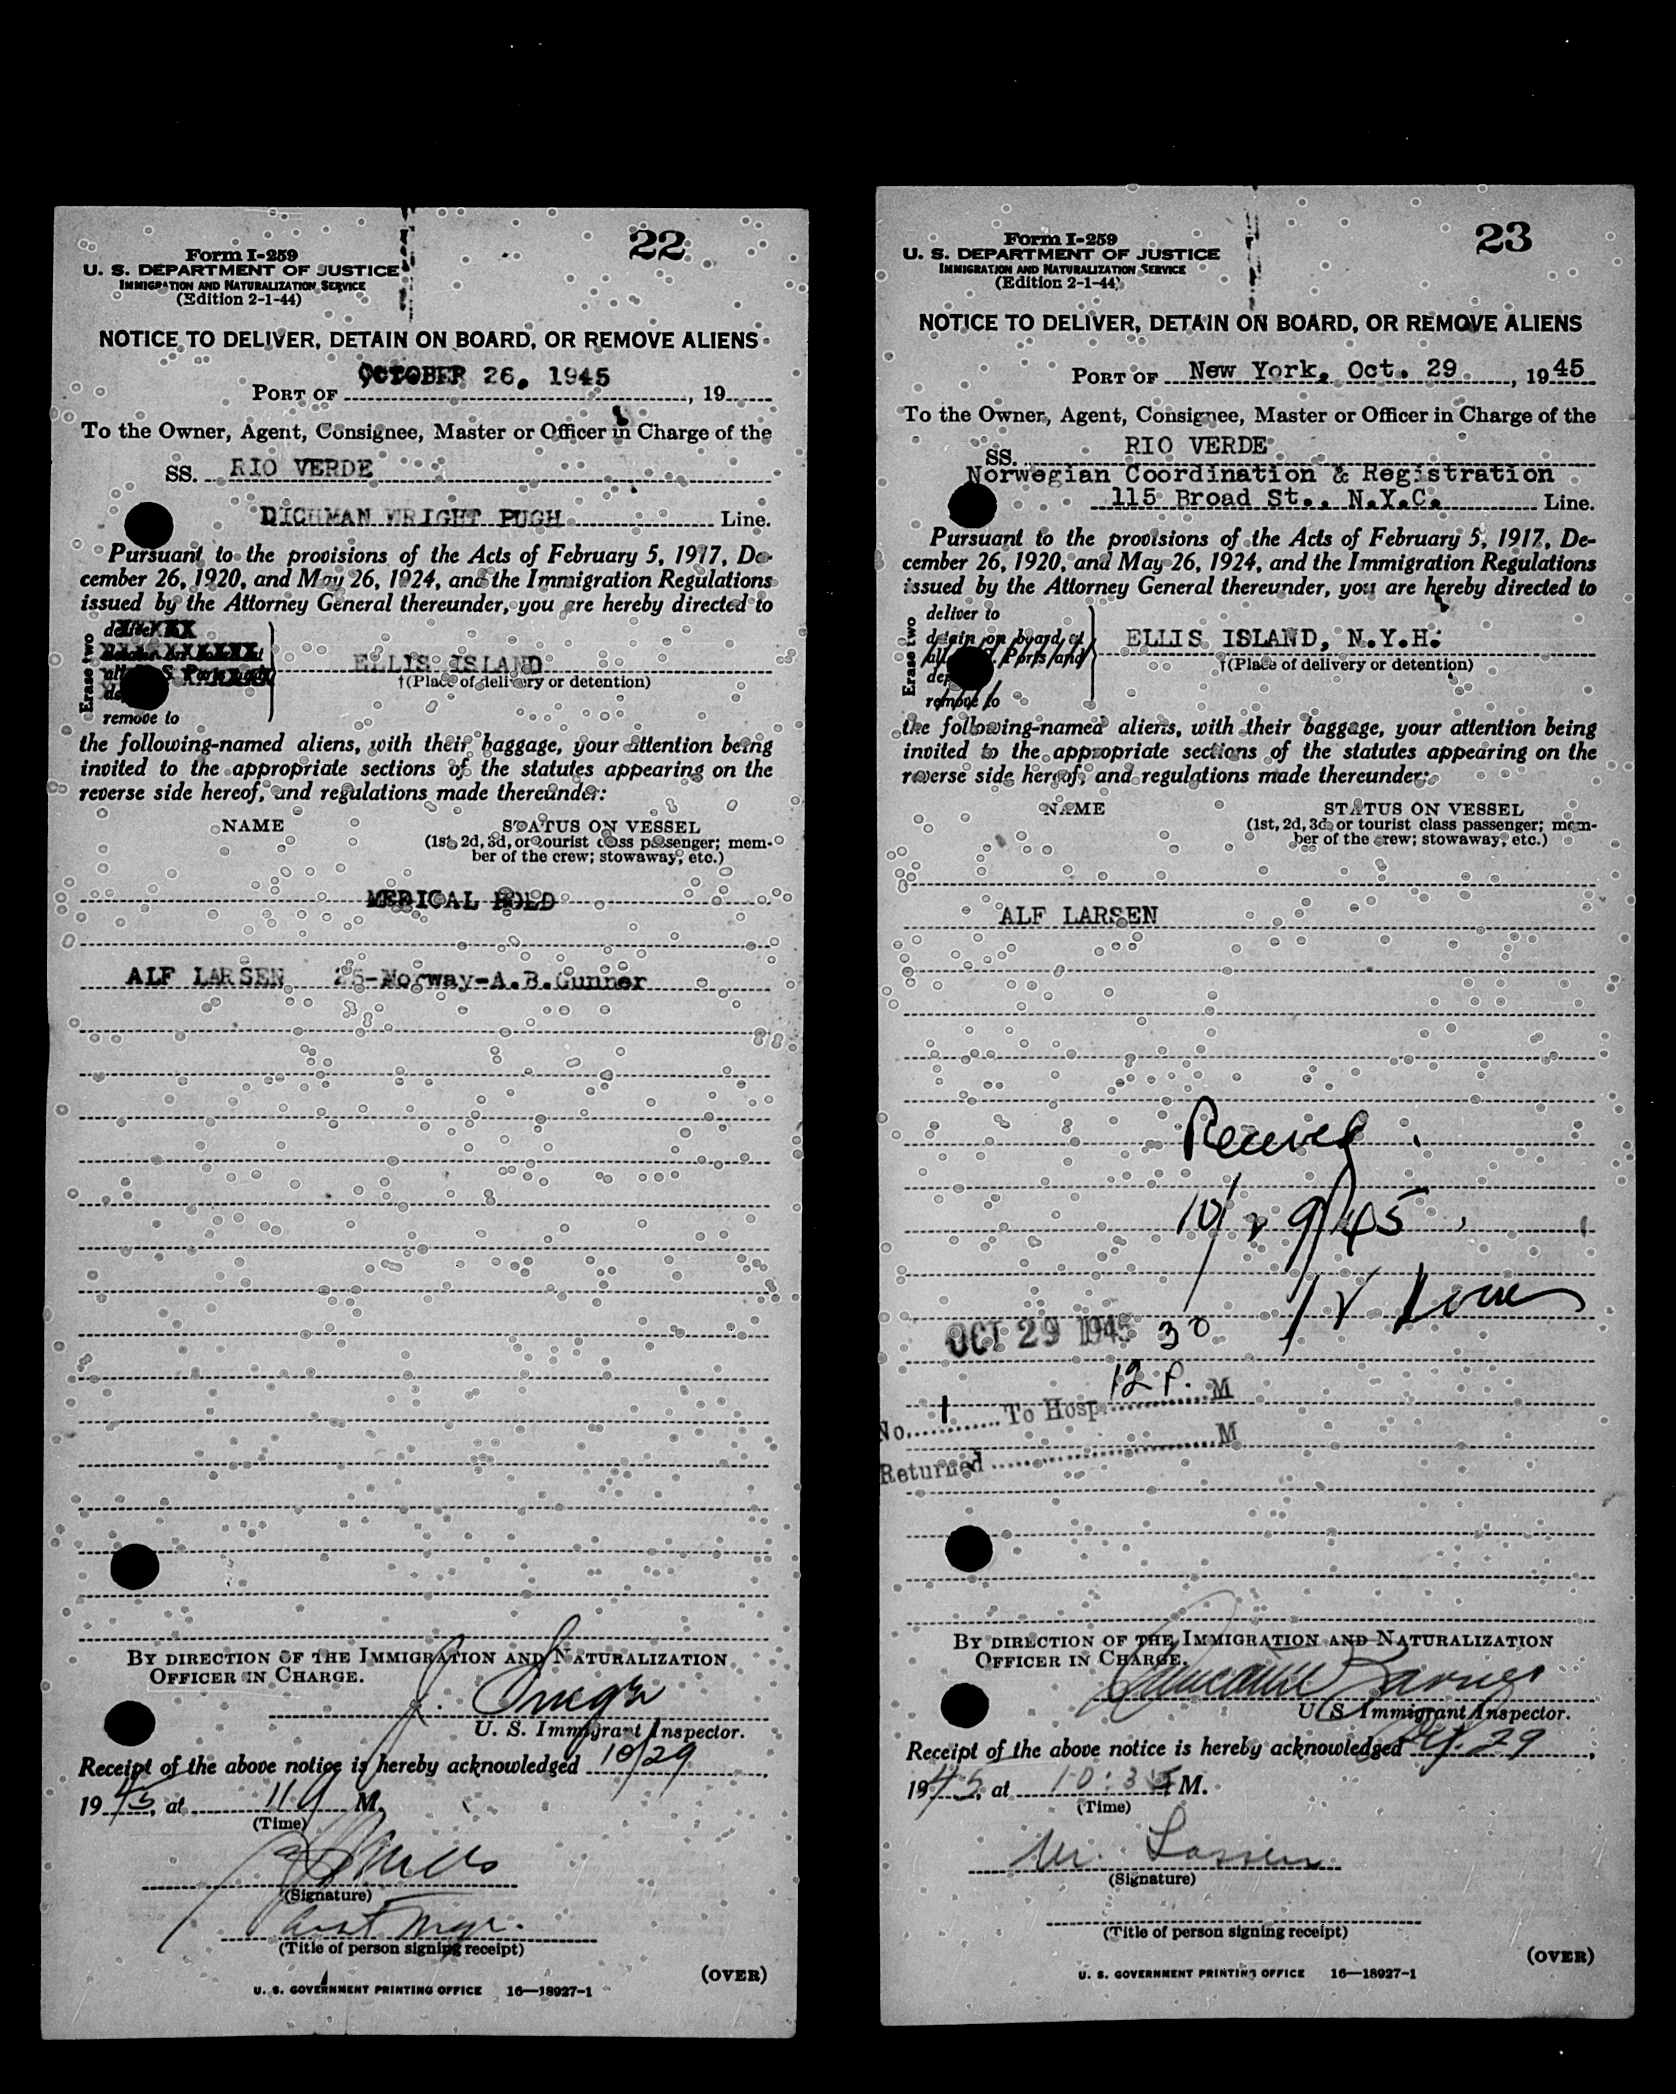 22
Form I-259
U. S. DEPARTMENT OF JUSTICE
IMMIGRATION AND NATURALIZATION SERVICE
(Edition 2-1-44)
NOTICE TO DELIVER, DETAIN ON BOARD, OR REMOVE ALIENS
OCTOBER 26, 1945
PORT OF , 19
To the Owner, Agent, Consignee, Master or Officer in Charge of the
SS. RIO VERDE
DICHMAN WRIGHT PUGH Line.
Pursuant to the provisions of the Acts of February 5, 1917, De-
cember 26, 1920, and May 26, 1924, and the Immigration Regulations
issued by the Attorney General thereunder, you are hereby directed to
Erase two
remove to
ELLIS ISLAND
†(Place of delivery or detention)
the following-named aliens, with their baggage, your attention being
invited to the appropriate sections of the statutes appearing on the
reverse side hereof, and regulations made thereunder:
NAME STATUS ON VESSEL
(1st, 2d, 3d, or tourist class passenger; mem-
ber of the crew; stowaway, etc.)
MEDICAL HOLD
ALF LARSEN 25-Norway-A.B.Gunner
BY DIRECTION OF THE IMMIGRATION AND NATURALIZATION
OFFICER IN CHARGE.
J.
U. S. Immigrant Inspector.
Receipt of the above notice is hereby acknowledged 10/29,
1945, at 11 a M.
(Time)
(Signature)
Asst Mgr.
(Title of person signing receipt)
(OVER)
U. S. GOVERNMENT PRINTING OFFICE 16—18927-1
23
Form I-259
U. S. DEPARTMENT OF JUSTICE
IMMIGRATION AND NATURALIZATION SERVICE
(Edition 2-1-44)
NOTICE TO DELIVER, DETAIN ON BOARD, OR REMOVE ALIENS
PORT OF New York, Oct. 29, 1945
To the Owner, Agent, Consignee, Master or Officer in Charge of the
SS. RIO VERDE
Norwegian Coordination & Registration
115 Broad St., N.Y.C. Line.
Pursuant to the provisions of the Acts of February 5, 1917, De-
cember 26, 1920, and May 26, 1924, and the Immigration Regulations
issued by the Attorney General thereunder, you are hereby directed to
Erase two
deliver to
detain on board at
all Ports and
remove to
ELLIS ISLAND, N.Y.H.
†(Place of delivery or detention)
the following-named aliens, with their baggage, your attention being
invited to the appropriate sections of the statutes appearing on the
reverse side hereof, and regulations made thereunder:
NAME STATUS ON VESSEL
(1st, 2d, 3d, or tourist class passenger; mem-
ber of the crew; stowaway, etc.)
ALF LARSEN
Received
10/29/45
OCT 29 1945
30
No. 1 To Hosp. 12 P. M
Returned M
BY DIRECTION OF THE IMMIGRATION AND NATURALIZATION
OFFICER IN CHARGE.
U. S. Immigrant Inspector.
Receipt of the above notice is hereby acknowledged Oct. 29,
1945, at 10:35 M.
(Time)
Mr. Lassen
(Signature)
(Title of person signing receipt)
(OVER)
U. S. GOVERNMENT PRINTING OFFICE 16—18927-1